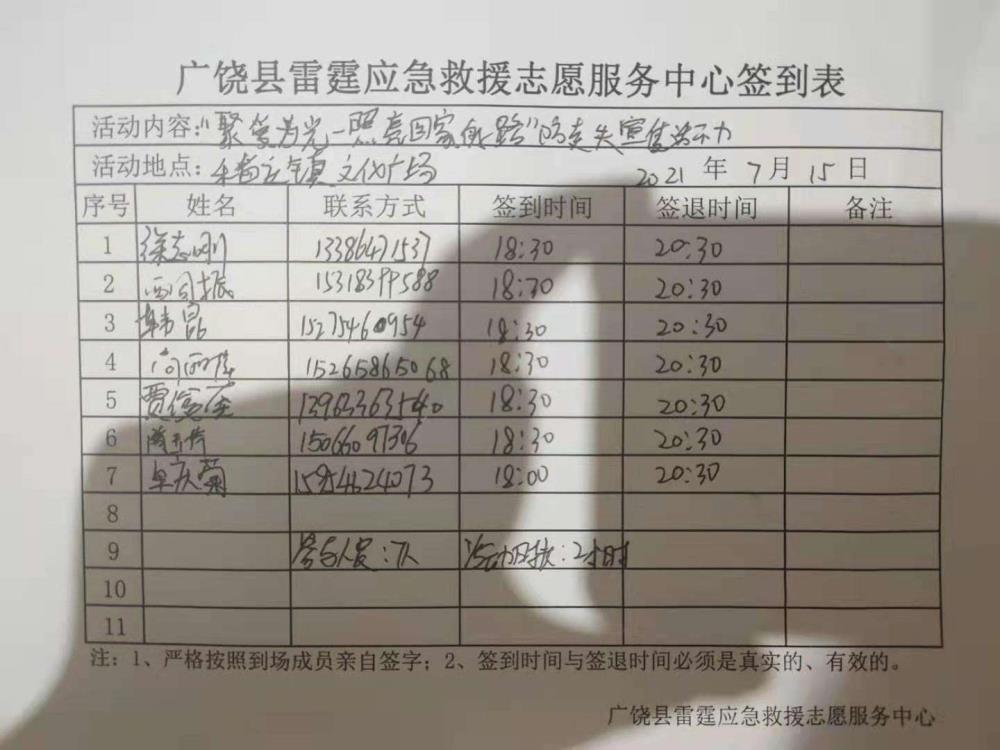 广饶县雷霆应急救援志愿服务中心签到表
活动内容:“聚爱为光—照亮回家的路”防走失宣传活动
活动地点: 镇文化广场 2021年7月15日
序号 姓名 联系方式 签到时间 签退时间 备注
1 徐志刚 13386471537 18:30 20:30
2 18:30 20:30
3 韩昆 15275460954 18:30 20:30
4 15265865068 18:30 20:30
5 18:30 20:30
6 15066097306 18:30 20:30
7 卓庆菊 15954624073 18:00 20:30
8
9 参与人员:7人 活动时长:2小时
10
11
注:1、严格按照到场成员亲自签字;2、签到时间与签退时间必须是真实的、有效的。
广饶县雷霆应急救援志愿服务中心